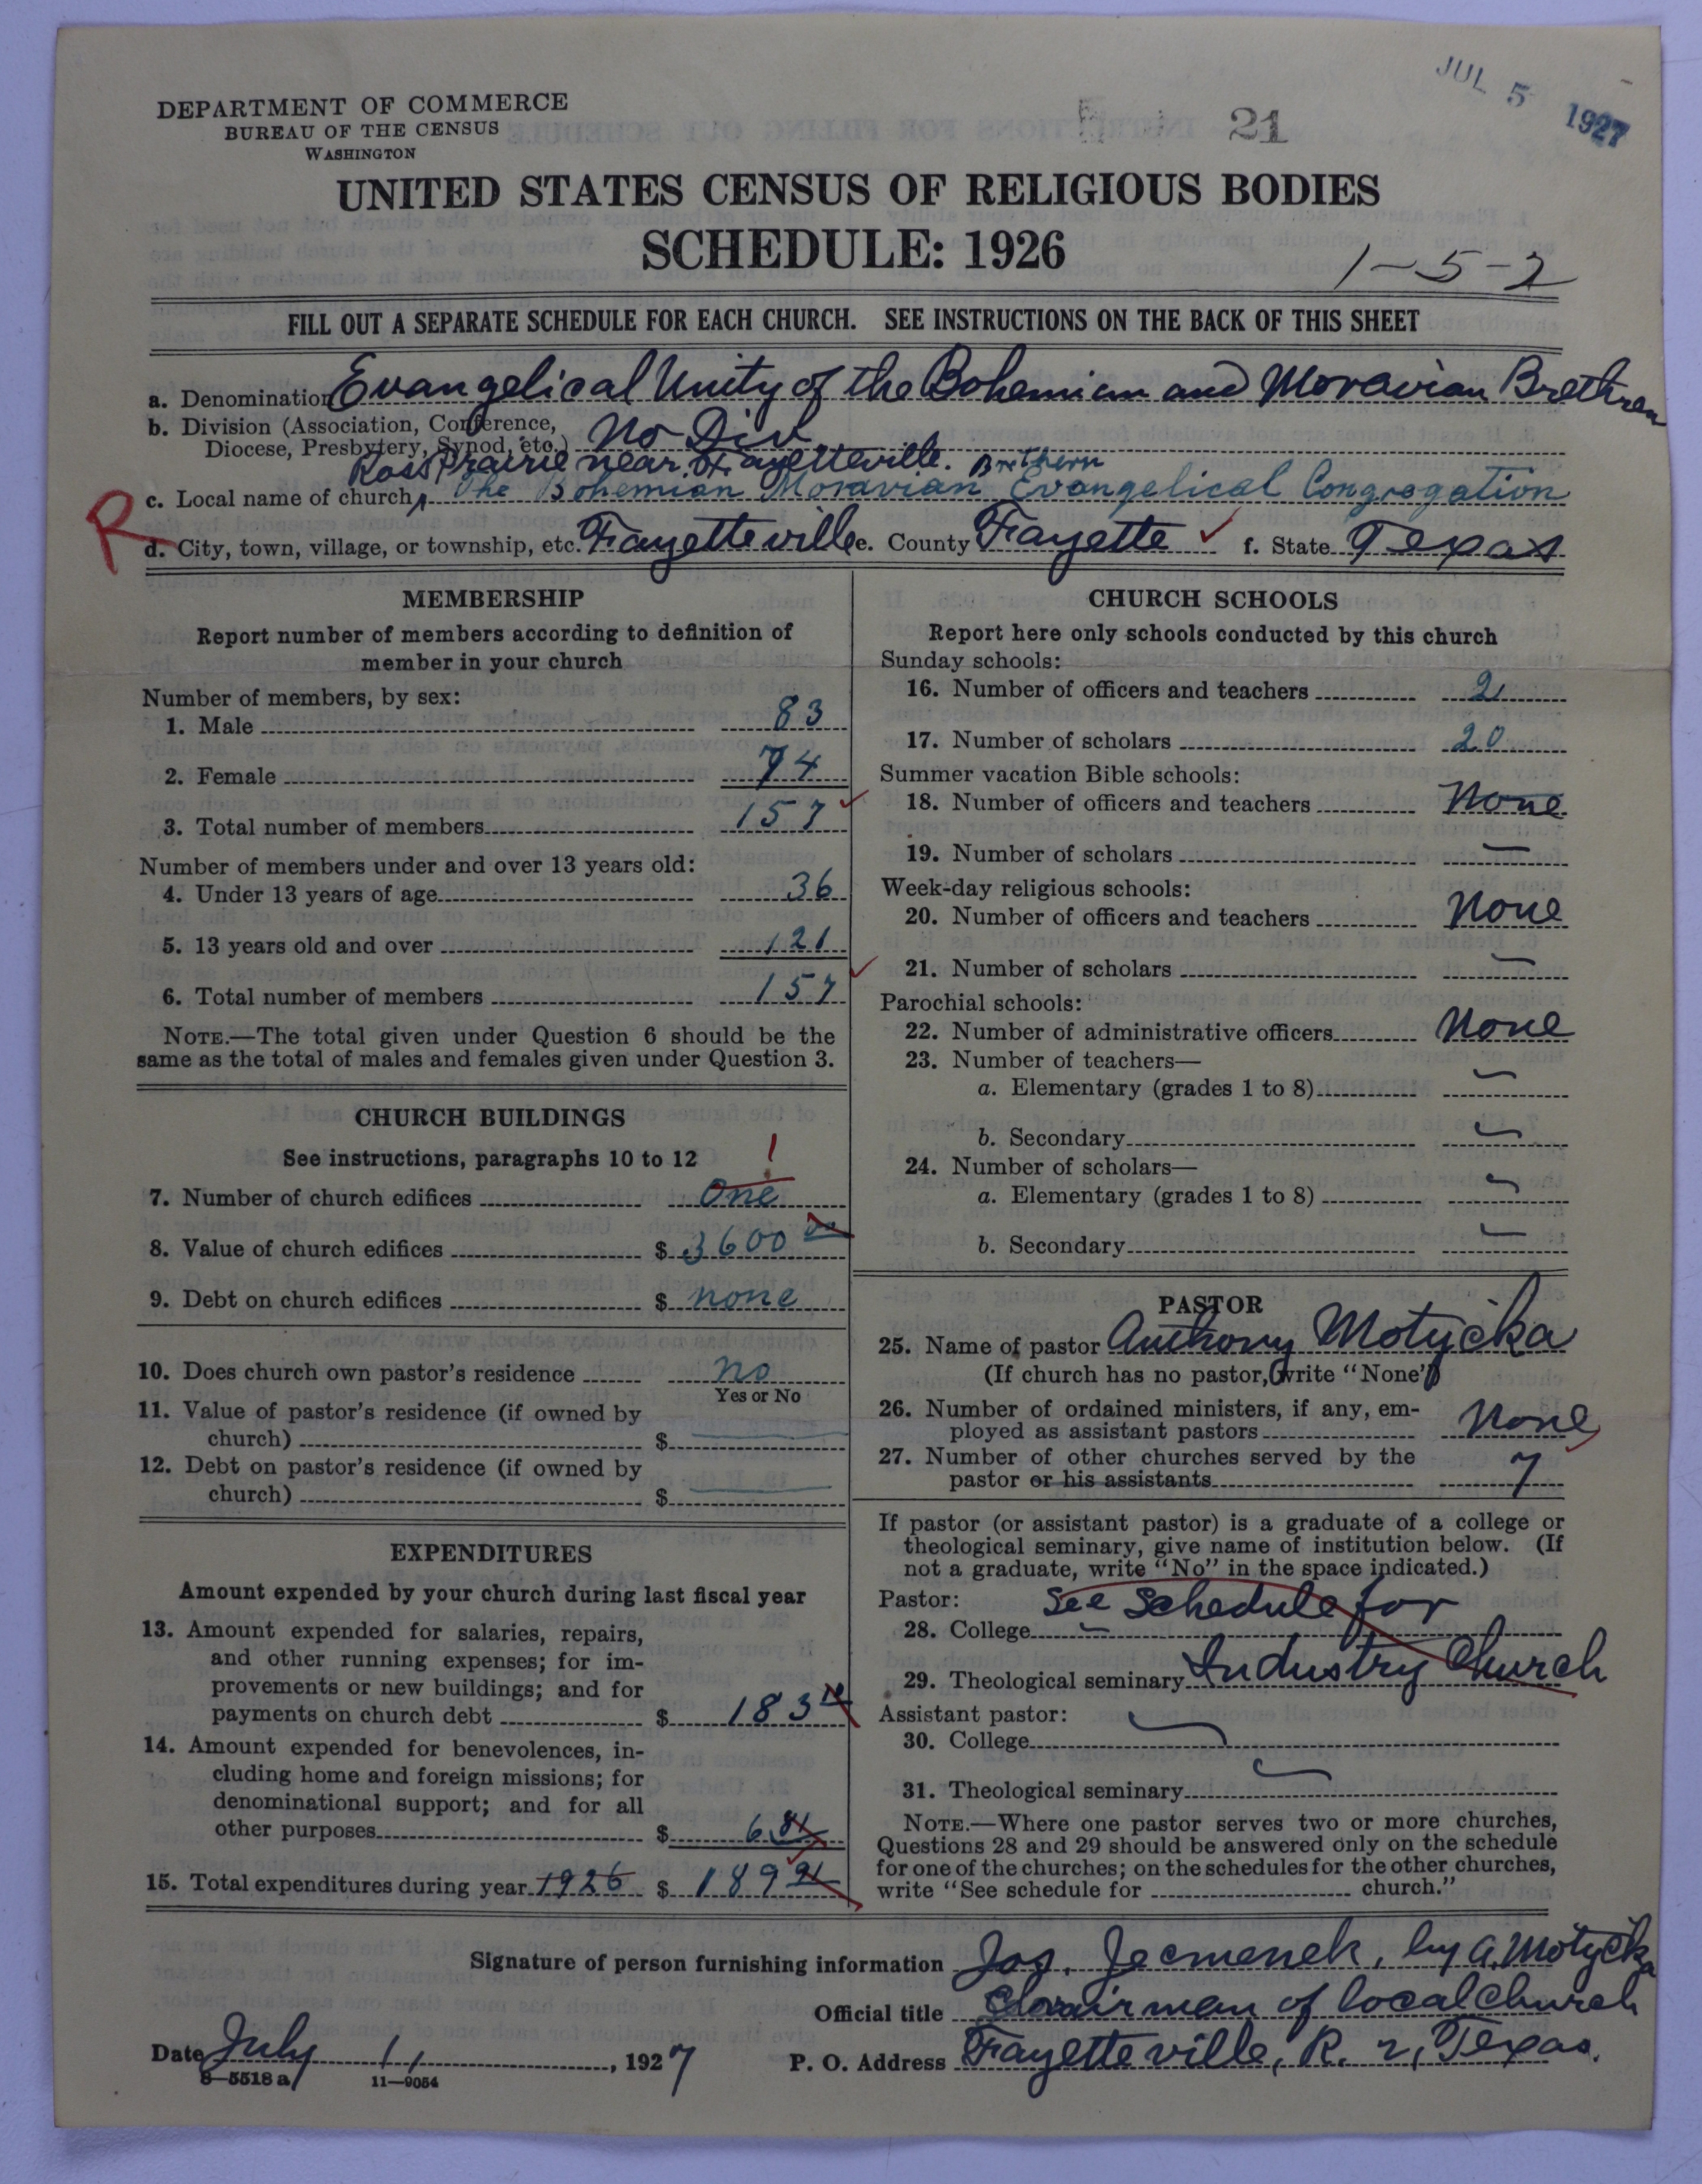 JUL 5 1927
DEPARTMENT OF COMMERCE
BUREAU OF THE CENSUS
WASHINGTON
21
UNITED STATES CENSUS OF RELIGIOUS BODIES
SCHEDULE: 1926
1-5-2
FILL OUT A SEPARATE SCHEDULE FOR EACH CHURCH. SEE INSTRUCTIONS ON THE BACK OF THIS SHEET
a. Denomination Evangelical Unity of the Bohemian and Moravian Brethren
b. Division (Association, Conference,
Diocese, Presbytery, Synod, etc.) No Div.
Ross Prairie near Fayetteville. Brethern
c. Local name of church The Bohemian Moravian Evangelical Congregation
R
d. City, town, village, or township, etc. Fayetteville e. County Fayette f. State Texas
MEMBERSHIP
Report number of members according to definition of
member in your church
Number of members, by sex:
1. Male 83
2. Female 74
3. Total number of members 157
Number of members under and over 13 years old:
4. Under 13 years of age 36
5. 13 years old and over 121
6. Total number of members 157
NOTE.—The total given under Question 6 should be the
same as the total of males and females given under Question 3.
CHURCH BUILDINGS
See instructions, paragraphs 10 to 12
1
7. Number of church edifices One
8. Value of church edifices $ 3600 00
9. Debt on church edifices $ none
10. Does church own pastor's residence no
Yes or No
11. Value of pastor's residence (if owned by
church) $
12. Debt on pastor's residence (if owned by
church) $
EXPENDITURES
Amount expended by your church during last fiscal year
13. Amount expended for salaries, repairs,
and other running expenses; for im-
provements or new buildings; and for
payments on church debt $ 183
14. Amount expended for benevolences, in-
cluding home and foreign missions; for
denominational support; and for all
other purposes $ 6 81
15. Total expenditures during year 1926 $ 189 91
CHURCH SCHOOLS
Report here only schools conducted by this church
Sunday schools:
16. Number of officers and teachers 2
17. Number of scholars 20
Summer vacation Bible schools:
18. Number of officers and teachers None
19. Number of scholars —
Week-day religious schools:
20. Number of officers and teachers None
21. Number of scholars —
Parochial schools:
22. Number of administrative officers None
23. Number of teachers—
a. Elementary (grades 1 to 8) —
b. Secondary —
24. Number of scholars—
a. Elementary (grades 1 to 8) —
b. Secondary —
PASTOR
25. Name of pastor Anthony Motycka
(If church has no pastor, write "None")
26. Number of ordained ministers, if any, em-
ployed as assistant pastors None
27. Number of other churches served by the
pastor or his assistants 7
If pastor (or assistant pastor) is a graduate of a college or
theological seminary, give name of institution below. (If
not a graduate, write "No" in the space indicated.)
Pastor: See Schedule for
28. College —
29. Theological seminary Industry Church
Assistant pastor:
30. College
31. Theological seminary
NOTE.—Where one pastor serves two or more churches,
Questions 28 and 29 should be answered only on the schedule
for one of the churches; on the schedules for the other churches,
write "See schedule for church."
Signature of person furnishing information Jos. Jecmenek, by A. Motycka
Official title Chairman of local Church
Date July 1, 1927 P. O. Address Fayetteville, R. 2, Texas.
8—5518 a 11—9054